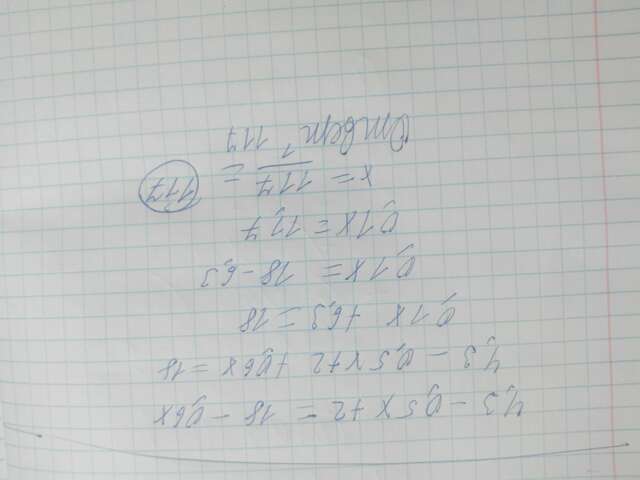 4,3 - 0,5x + 2 = 18 - 0,6x
4,3 - 0,5x + 2 + 0,6x = 18
0,1x + 6,3 = 18
0,1x = 18 - 6,3
0,1x = 11,7
x = 117/1 = 117
Ответ 117